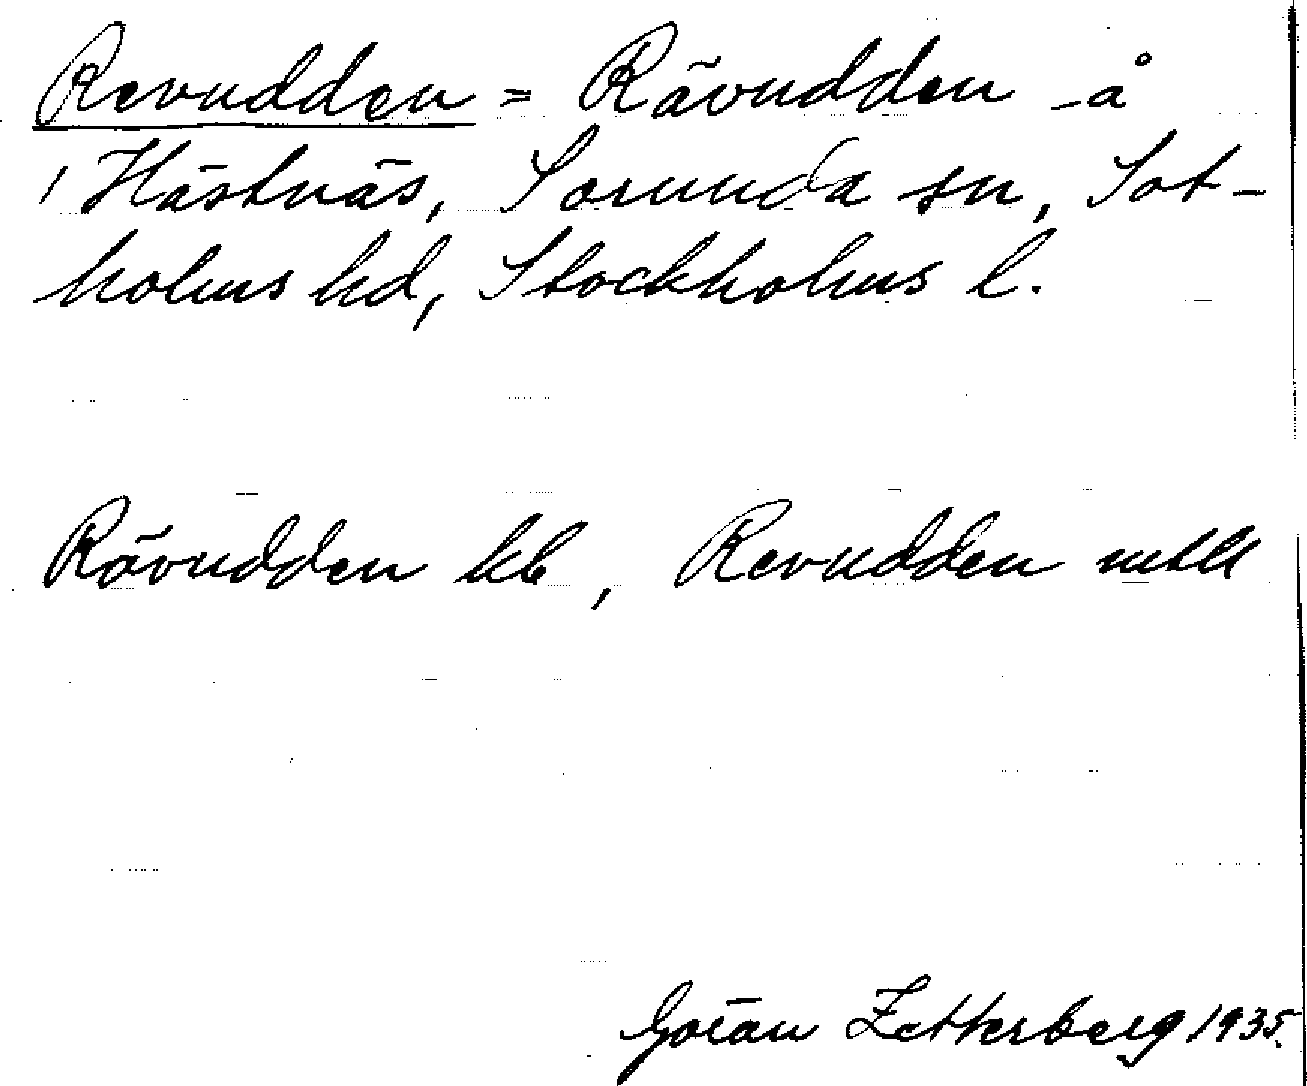 Revudden = Rävudden å
/ Hästnäs, Sorunda sn, Sot-
holms hd, Stockholms l.
Rävudden kb, Revudden mtll
Göran Zetterberg 1935.